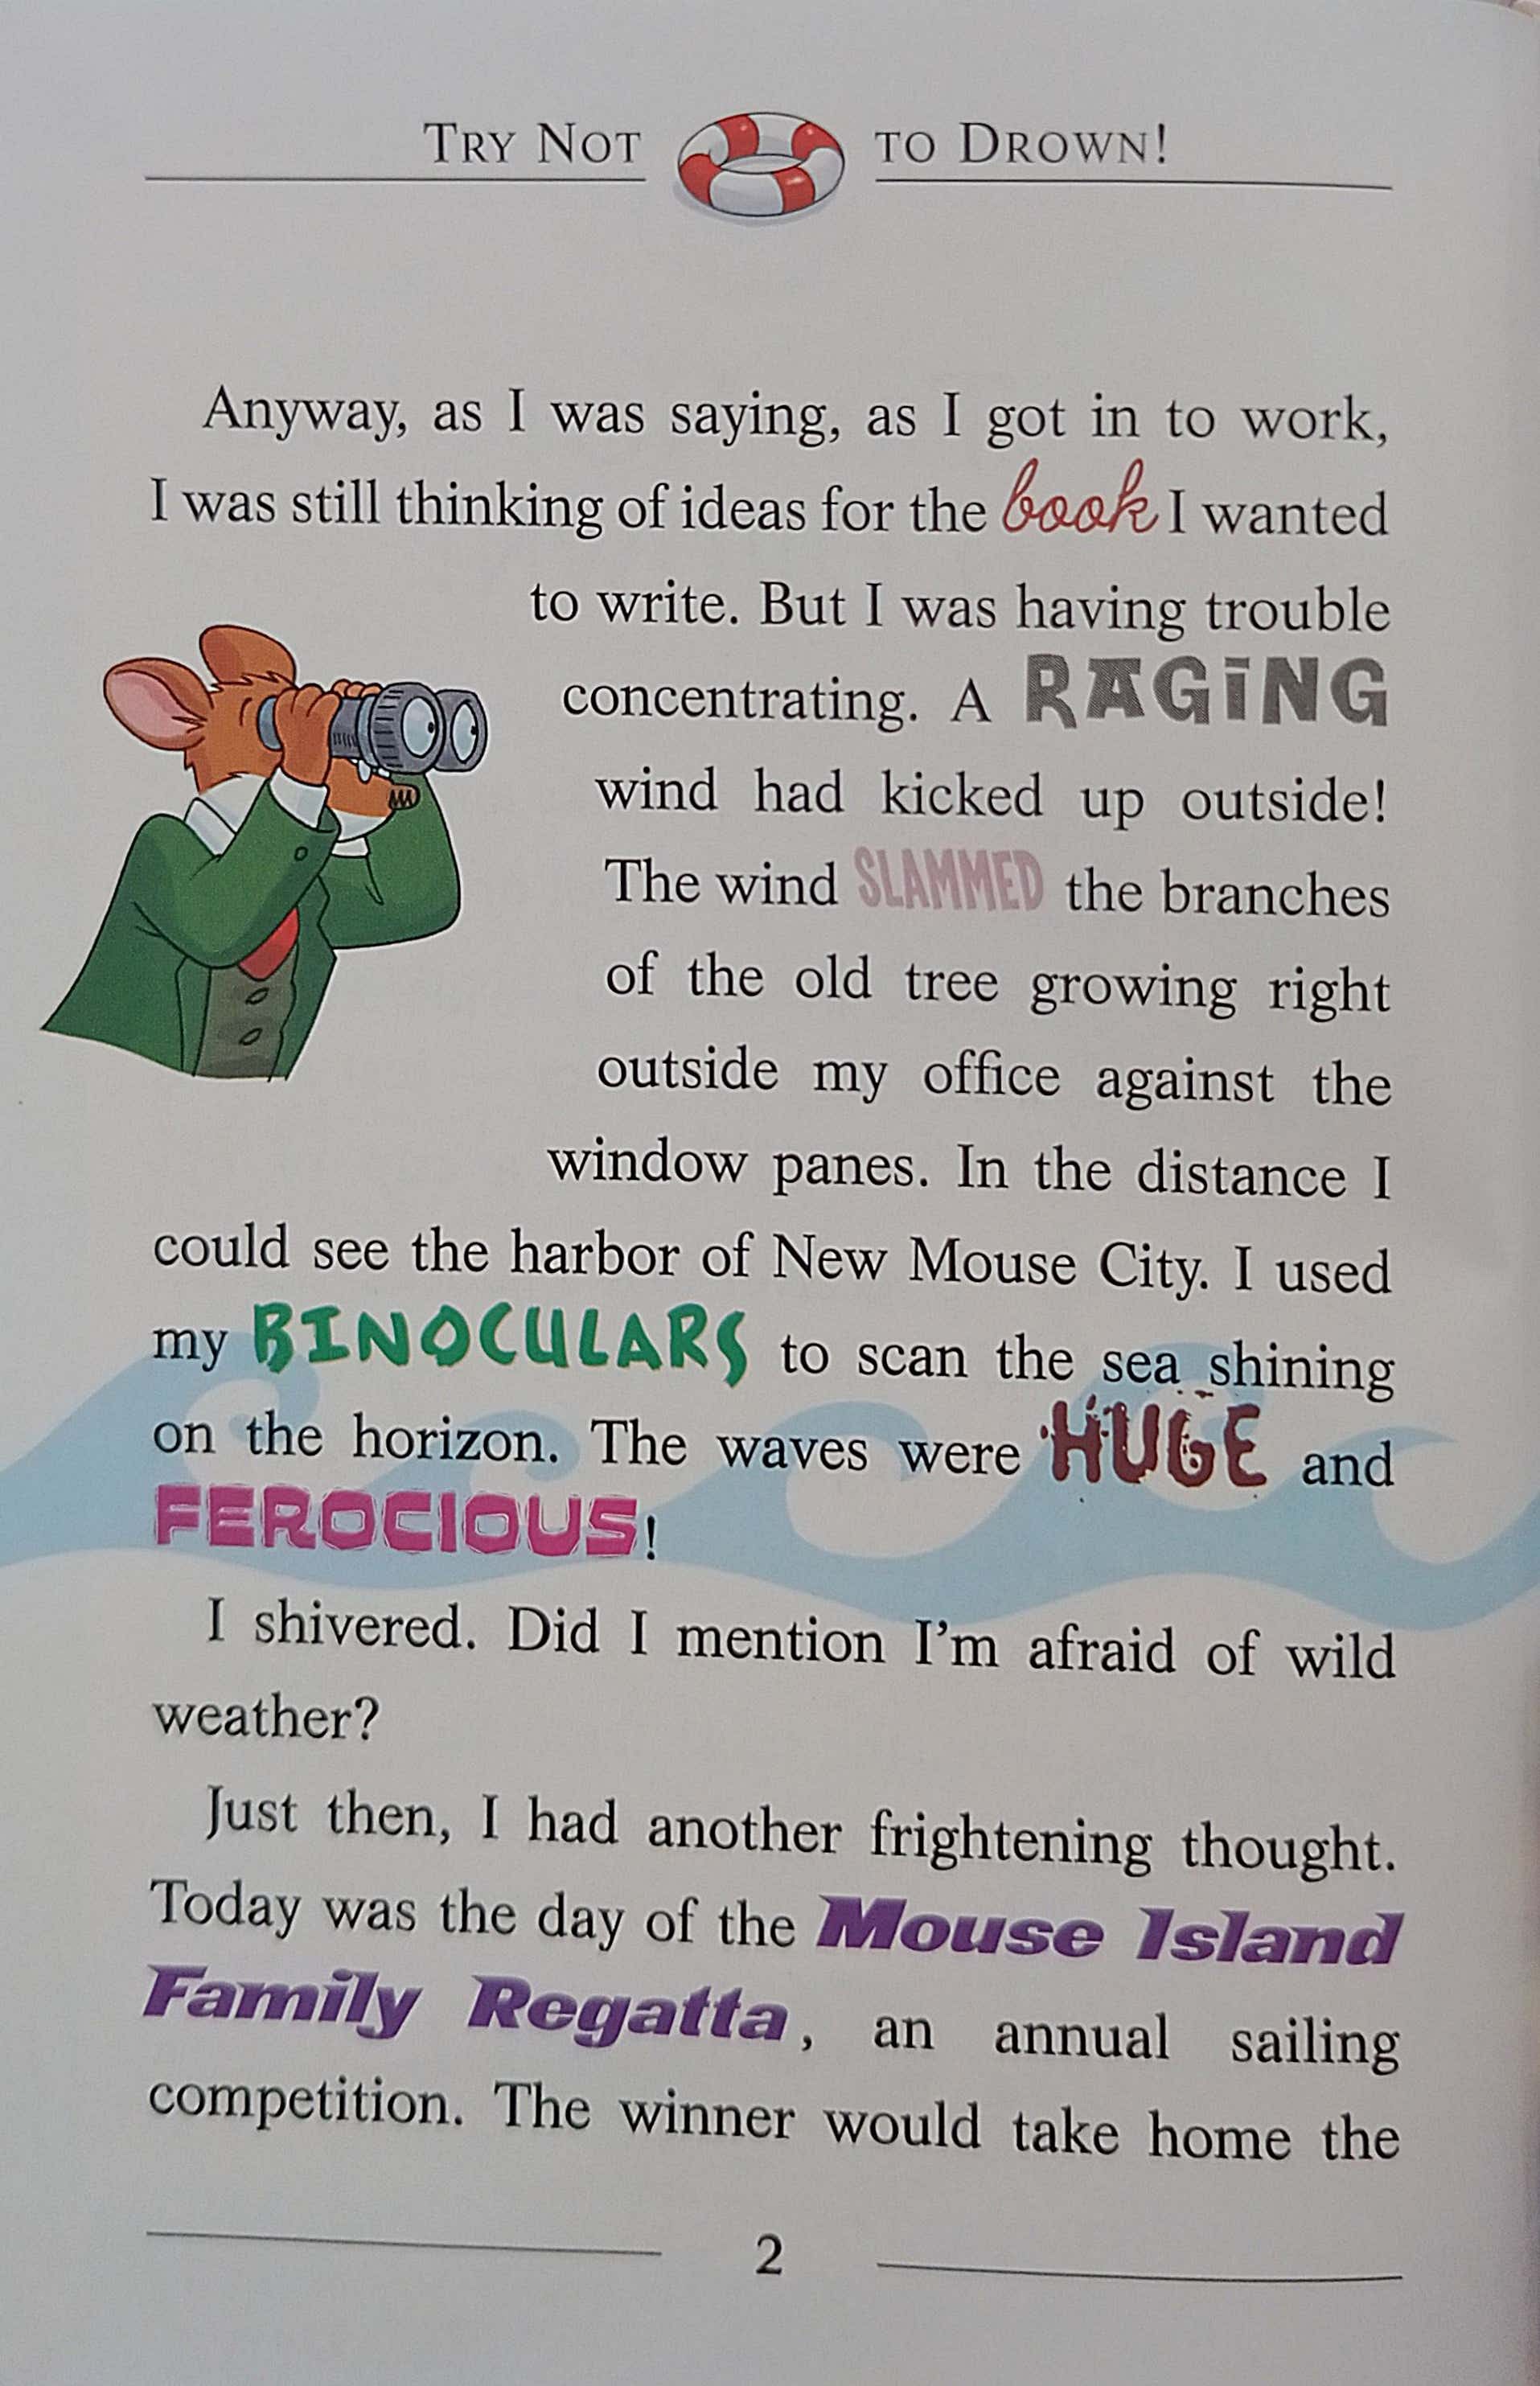 TRY NOT TO DROWN!
Anyway, as I was saying, as I got in to work,
I was still thinking of ideas for the book I wanted
to write. But I was having trouble
concentrating. A RAGING
wind had kicked up outside!
The wind SLAMMED the branches
of the old tree growing right
outside my office against the
window panes. In the distance I
could see the harbor of New Mouse City. I used
my BINOCULARS to scan the sea shining
on the horizon. The waves were HUGE and
FEROCIOUS!
I shivered. Did I mention I'm afraid of wild
weather?
Just then, I had another frightening thought.
Today was the day of the Mouse Island
Family Regatta, an annual sailing
competition. The winner would take home the
2